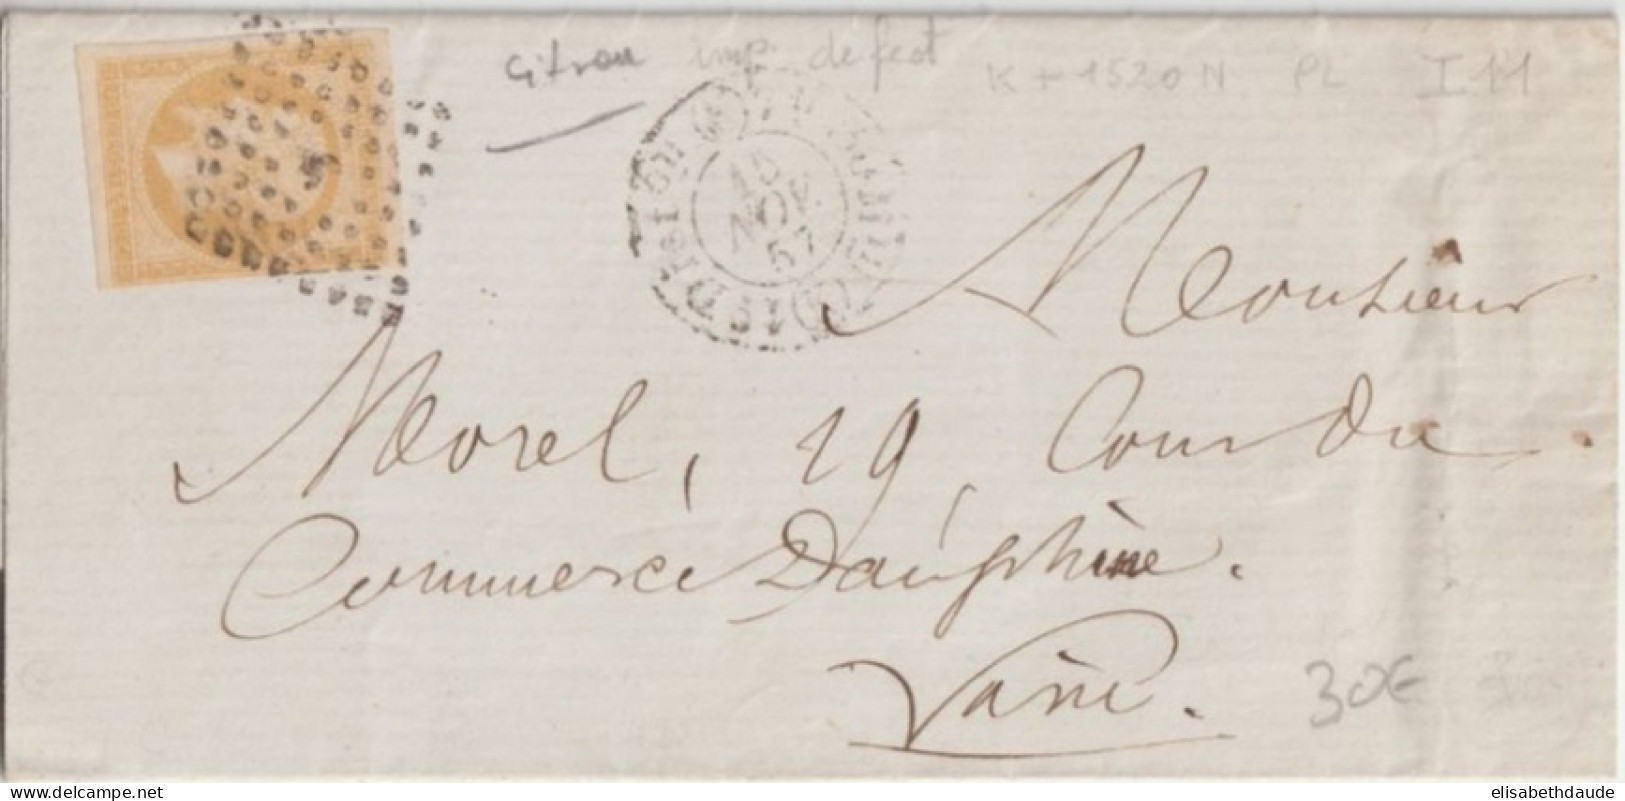 Citron imp. defect
K + 1520 N PL I 11
15
NOV
57
Monsieur
Morel, 29, Cour du
Commerce Dauphine.
Paris.
30€
delcampe.net
elisabethdaude